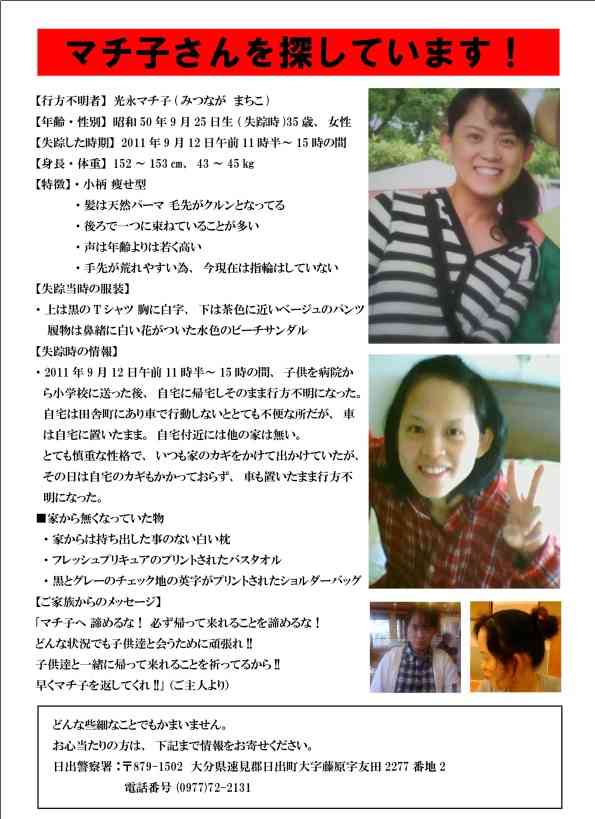 マチ子さんを探しています！
【行方不明者】 光永マチ子 ( みつなが　まちこ )
【年齢・性別】 昭和 50 年 9 月 25 日生 ( 失踪時 )35 歳、 女性
【失踪した時期】 2011 年 9 月 12 日午前 11 時半～ 15 時の間
【身長・体重】 152 ～ 153 ㎝、 43 ～ 45 ㎏
【特徴】・小柄 痩せ型
・髪は天然パーマ 毛先がクルンとなってる
・後ろで一つに束ねていることが多い
・声は年齢よりは若く高い
・手先が荒れやすい為、 今現在は指輪はしていない
【失踪当時の服装】
・上は黒の T シャツ 胸に白字、 下は茶色に近いベージュのパンツ
履物は鼻緒に白い花がついた水色のビーチサンダル
【失踪時の情報】
・2011 年 9 月 12 日午前 11 時半～ 15 時の間、 子供を病院か
ら小学校に送った後、 自宅に帰宅しそのまま行方不明になった。
自宅は田舎町にあり車で行動しないととても不便な所だが、 車
は自宅に置いたまま。 自宅付近には他の家は無い。
とても慎重な性格で、 いつも家のカギをかけて出かけていたが、
その日は自宅のカギもかかっておらず、 車も置いたまま行方不
明になった。
■家から無くなっていた物
・家からは持ち出した事のない白い枕
・フレッシュプリキュアのプリントされたバスタオル
・黒とグレーのチェック地の英字がプリントされたショルダーバッグ
【ご家族からのメッセージ】
「マチ子へ 諦めるな！ 必ず帰って来れることを諦めるな！
どんな状況でも子供達と会うために頑張れ !!
子供達と一緒に帰って来れることを祈ってるから !!
早くマチ子を返してくれ !!」 (ご主人より)
どんな些細なことでもかまいません。
お心当たりの方は、 下記まで情報をお寄せください。
日出警察署：〒879-1502 大分県速見郡日出町大字藤原字友田 2277 番地 2
電話番号 (0977)72-2131